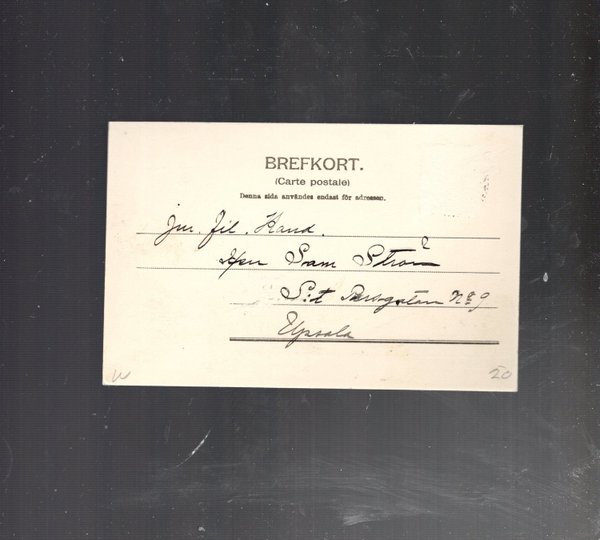 BREFKORT.
(Carte postale)
Denna sida användes endast för adressen.
Jur. fil. Kand.
Herr Sam Ström
S:t Persgatan No 9
Upsala
20